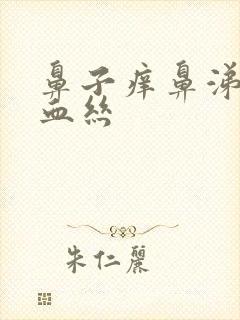 鼻子痒鼻涕
血丝
朱仁丽